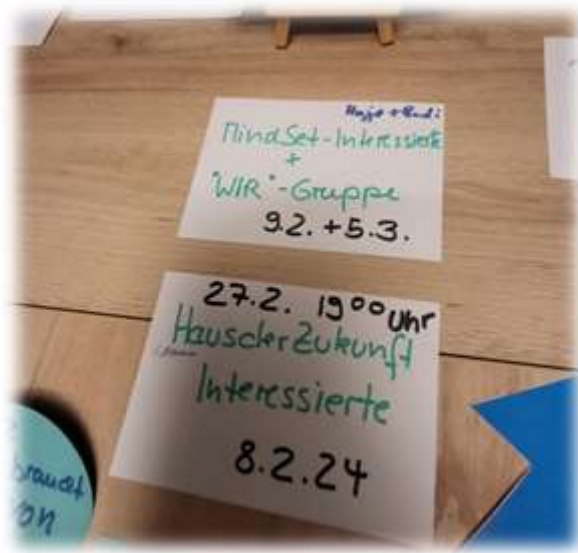 MindSet-Interessierte
+
"WIR"-Gruppe
9.2. + 5.3.
27.2. 19⁰⁰ Uhr
Haus der Zukunft
Interessierte
8.2.24
braucht